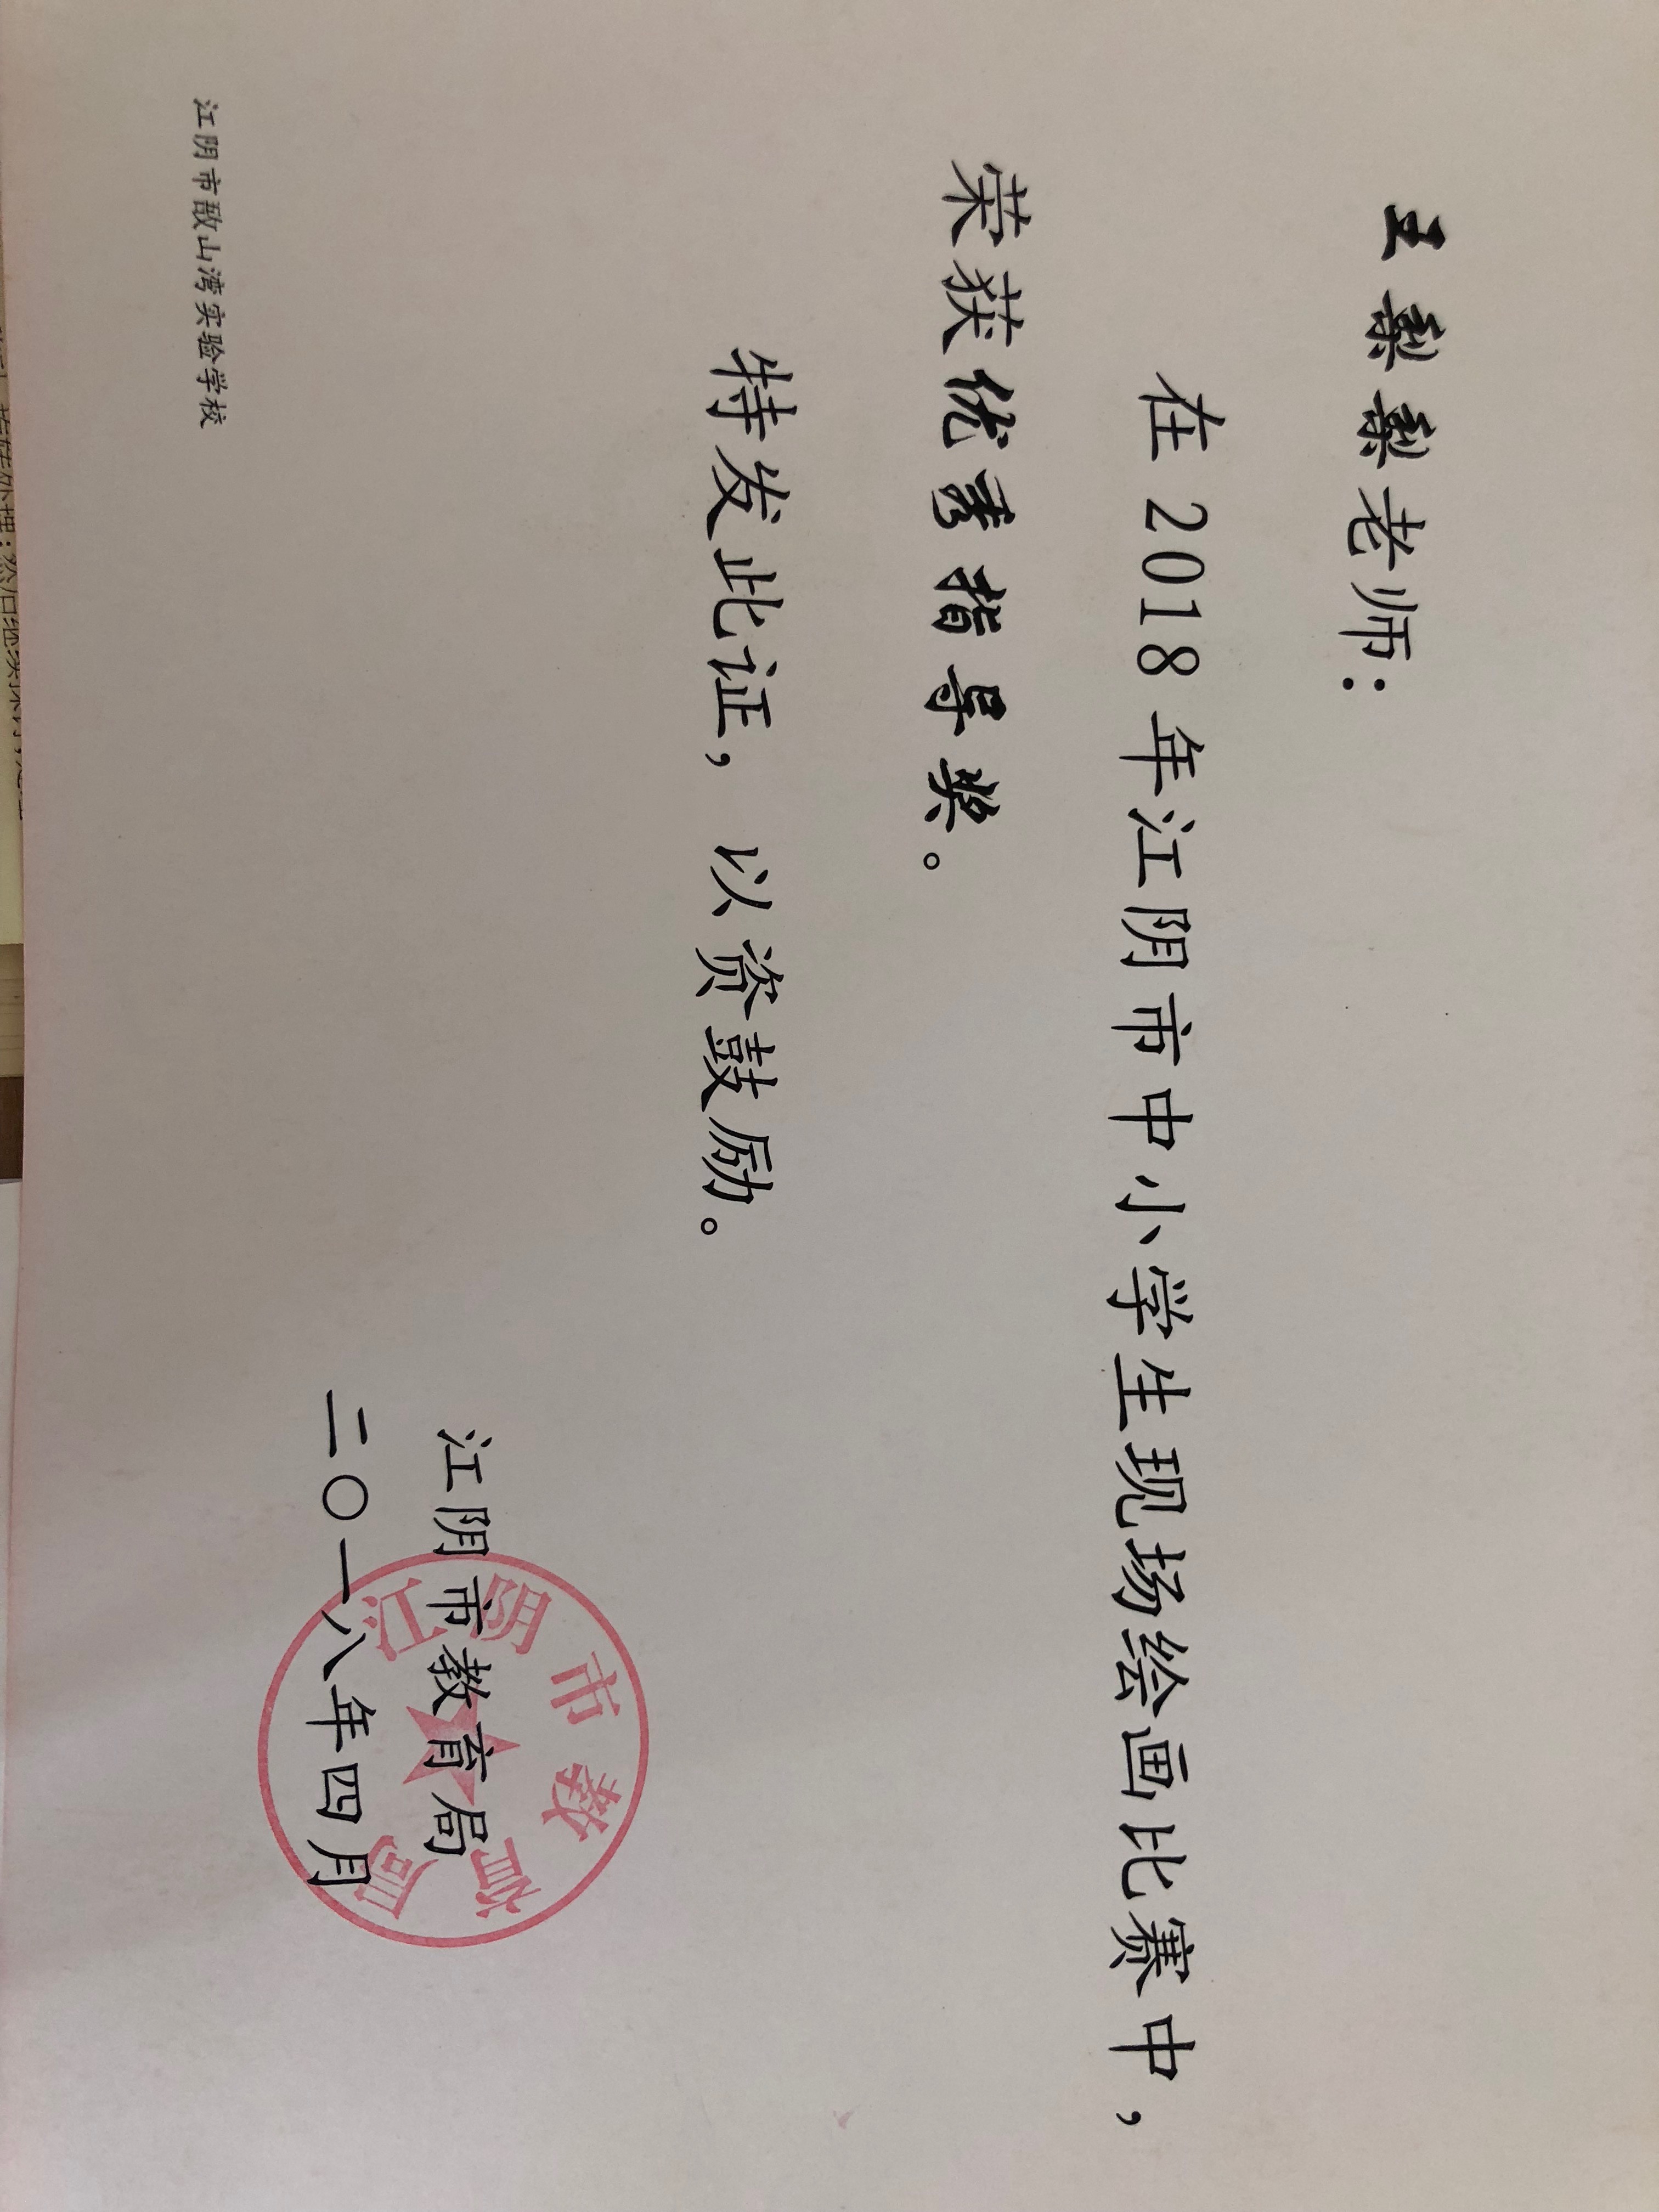 王梨梨老师：
在 2018 年江阴市中小学生现场绘画比赛中，
荣获优秀指导奖。
特发此证，以资鼓励。
江阴市教育局
二〇一八年四月
江阴市教育局
江阴市敔山湾实验学校